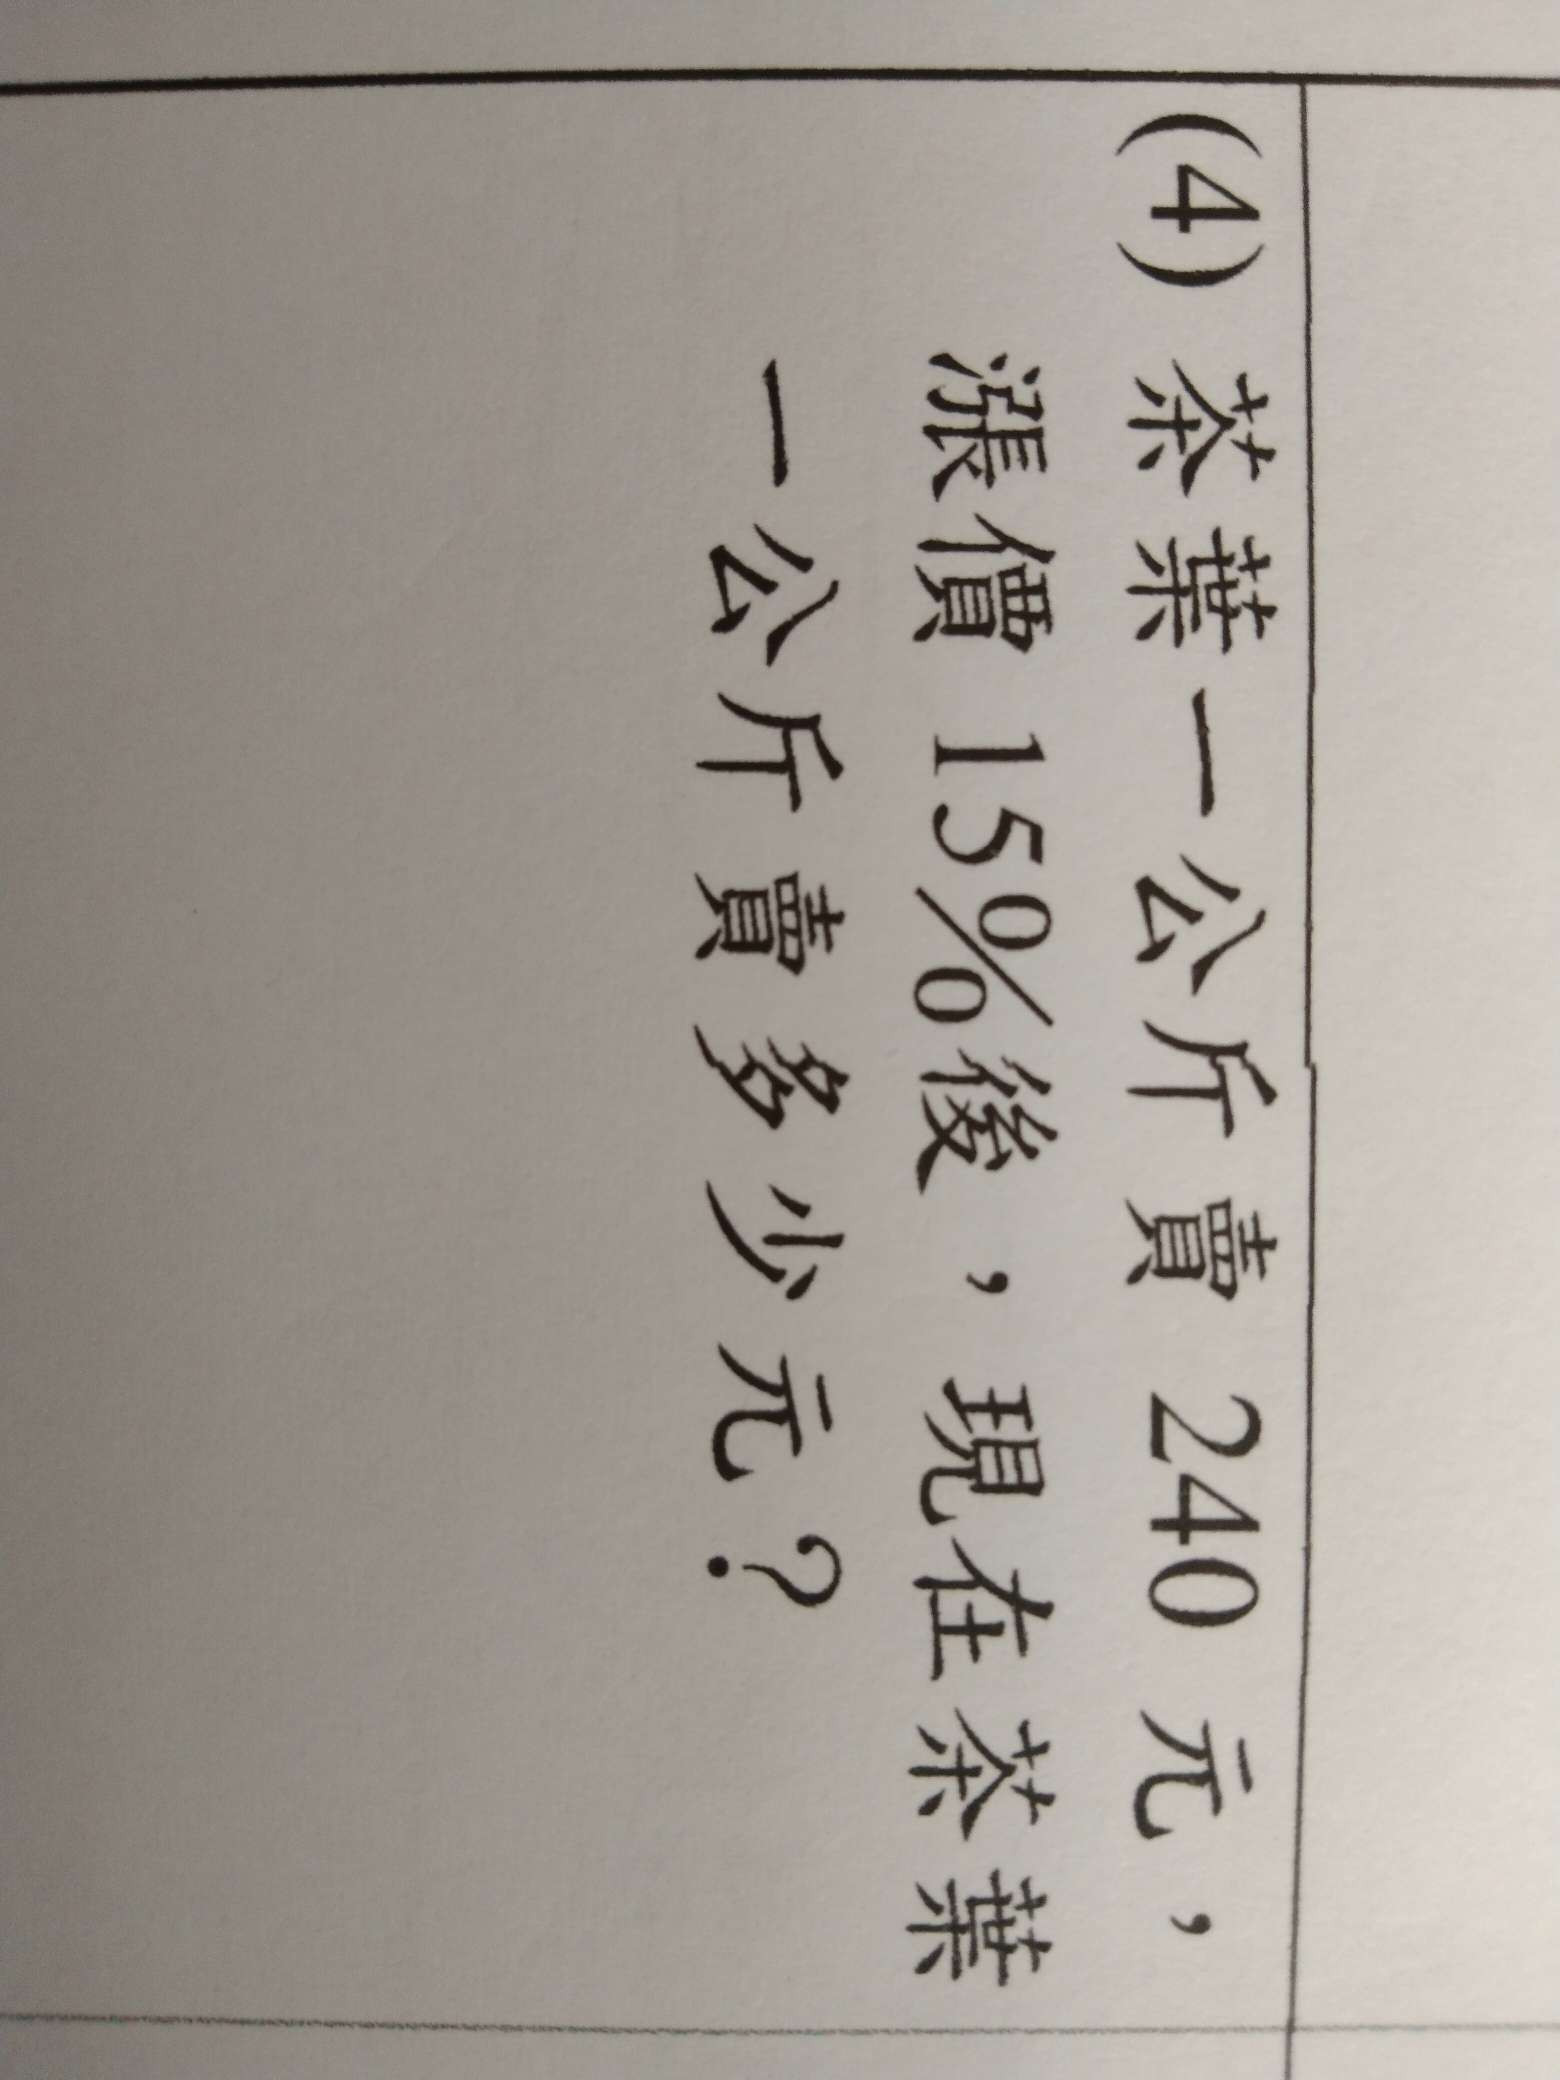 (4) 茶葉一公斤賣 240 元，
漲價 15%後，現在茶葉
一公斤賣多少元？